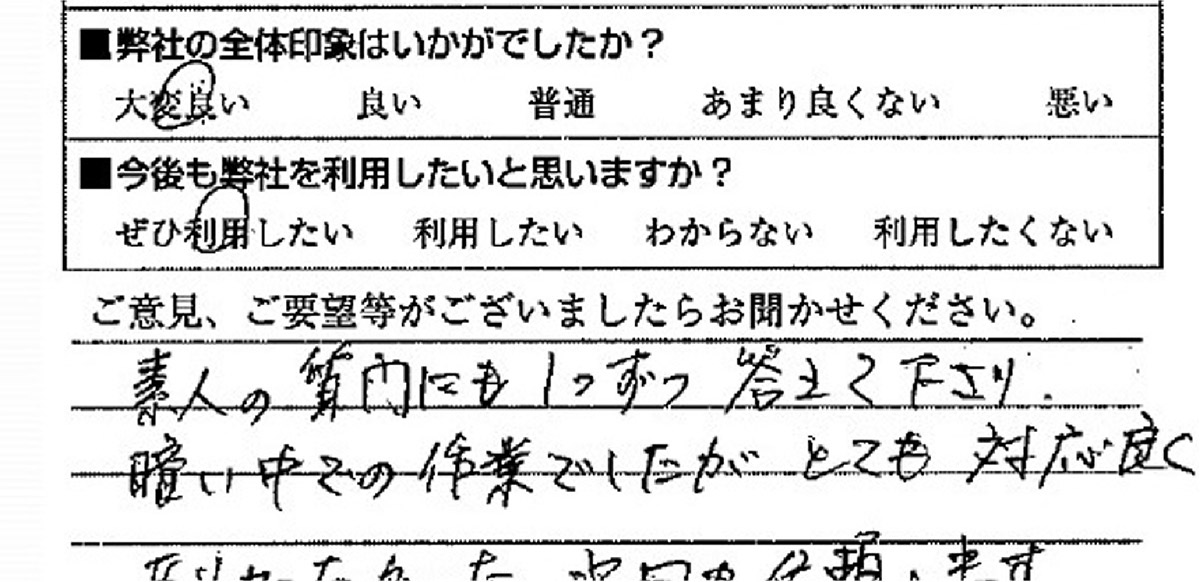 ■弊社の全体印象はいかがでしたか？
大変良い 良い 普通 あまり良くない 悪い
■今後も弊社を利用したいと思いますか？
ぜひ利用したい 利用したい わからない 利用したくない
ご意見、ご要望等がございましたらお聞かせください。
素人の質問にも1つずつ答えて下さり.
暗い中での作業でしたがとても対応良く